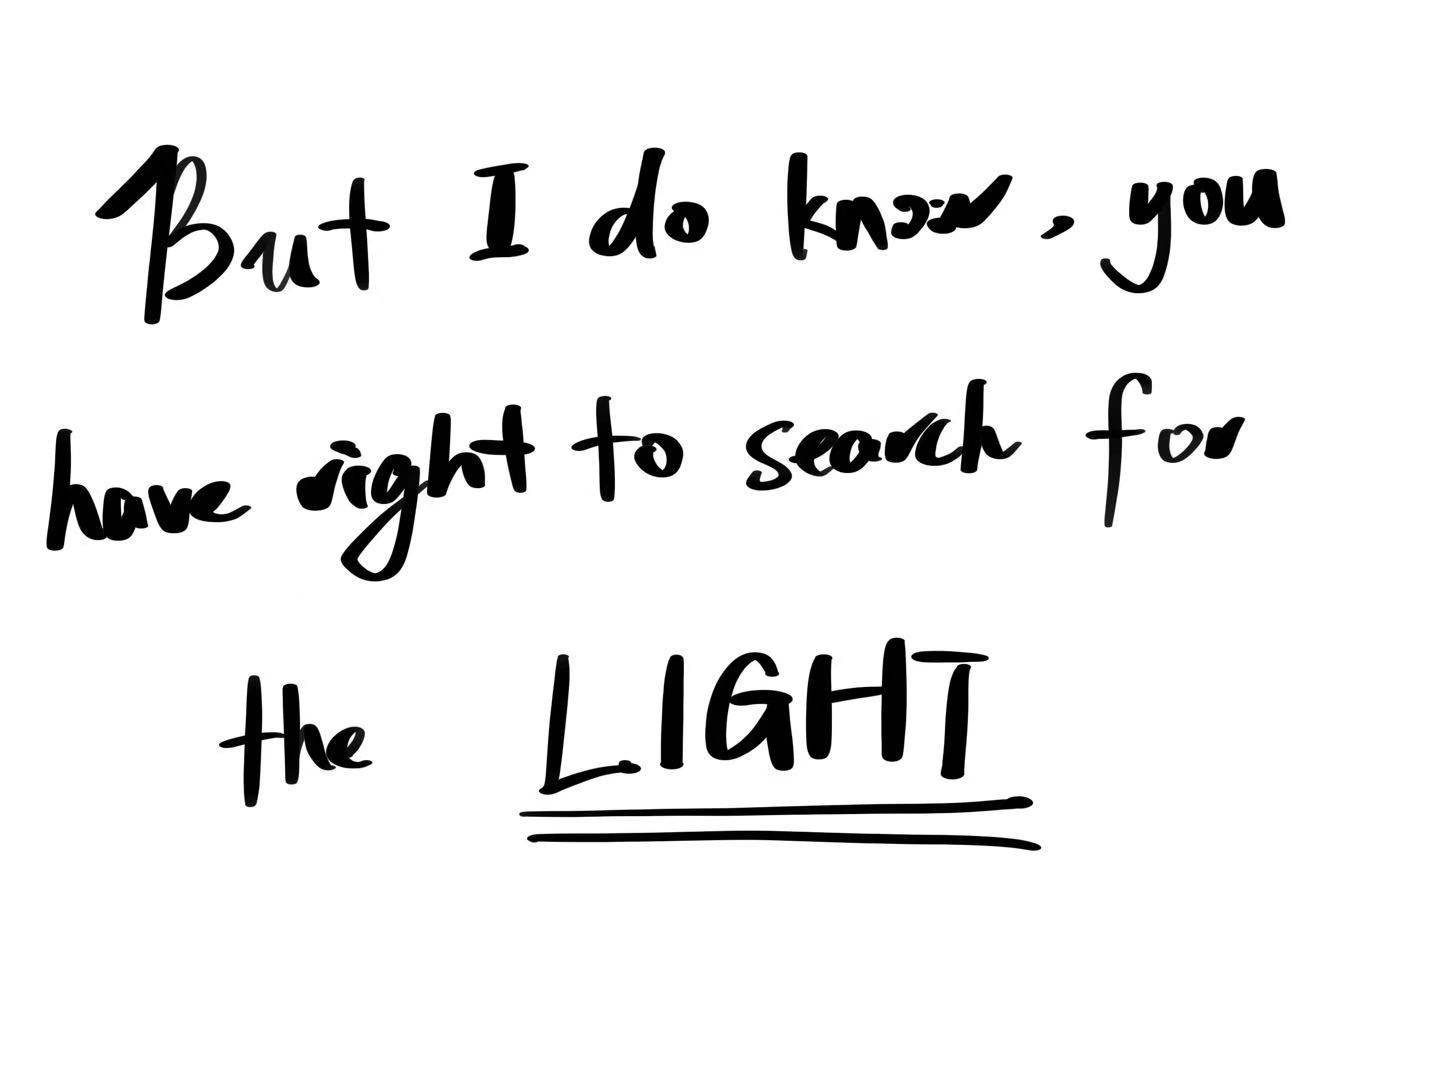 But I do know, you
have right to search for
the LIGHT